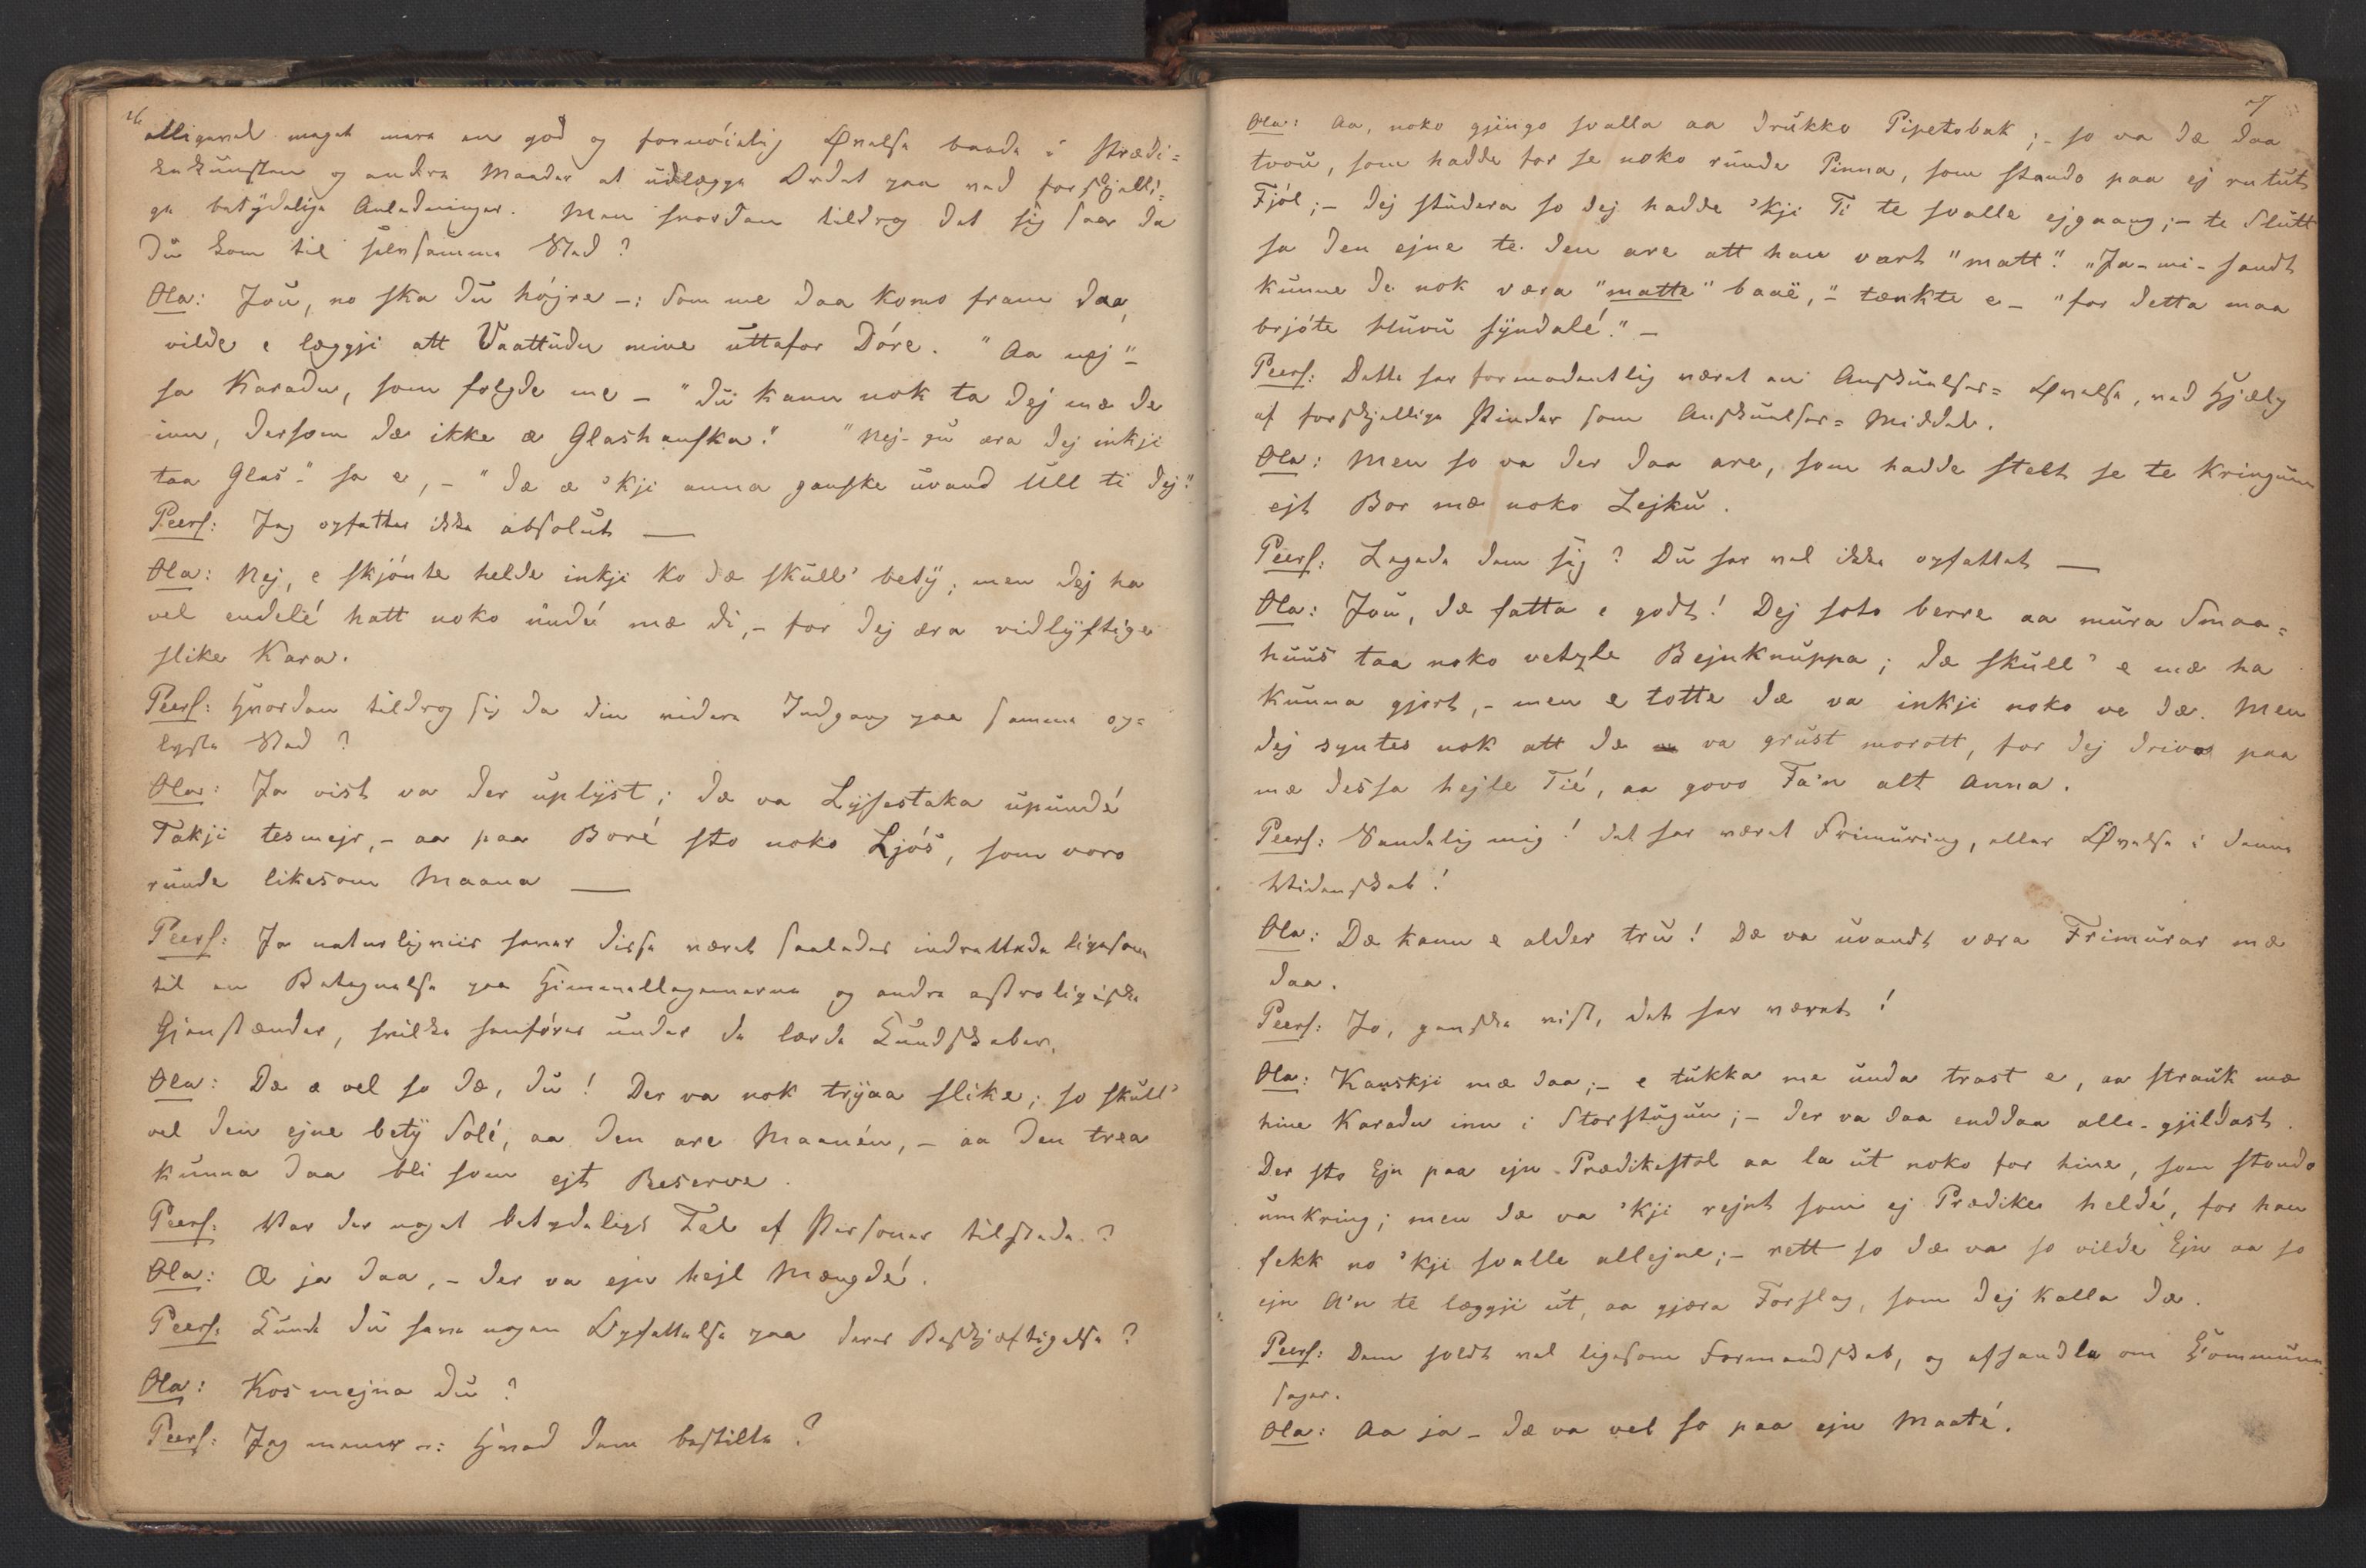 alligevel meget mere en god og fornöielig Øvelse baade i Prædi=
kekunsten og andre Maader at udlægge Ordet paa ved forskjelli=
ge betydelige Anledninger. Men hvordan tildrog det sig saa da
du kom til selvsamme Sted?
Ola: Jou, no ska du højre –: Som me daa komo fram daa,
vilde e læggji att Vaattudn mine uttafor Dóre. "Aa nej" –
sa Karadn, som folgde me – "du kann nok ta dej mæ de
inn, dersom dæ ikke æ Glashanska." "Nej-gu æra dej inkji
taa Glas" – sa e, – "dæ æ 'kji anna ganske uvand Ull ti dej."
Peers: Jeg opfatter ikke absolut —
Ola: Nej, e skjónte helde inkji ko dæ skull' bety; men dej ha
vel endelé hatt noko undú mæ di, – for dej æra vidlyftige
slike Kara.
Peers: Hvordan tildrog sig da din videre Indgang paa samme op=
lyste Sted?
Ola: Ja vist va der uplyst; dæ va Lysestaka upundé
Takji tesmejr, – aa paa Boré sto noko Ljós, som voro
runde likesom Maana —
Peers: Ja naturligviis haver disse været saaledes indrettede ligesom
til en Betegnelse paa Himmellegemerne og andre astroligiske
Gjenstænder, hvilke henfóres under de lærde Kundskaber.
Ola: Dæ æ vel so dæ, du! Der va nok tryaa slike; so skull'
vel den ejne bety Solé, aa den are Maanén, – aa den trea
kunna daa bli som ejt Reserve.
Peers: Var der noget betydeligt Tal af Personer tilstede?
Ola: Æ ja daa, – der va ejn hejl Mængdé.
Peers: Kunde du have nogen Opfattelse paa deres Beskjæftigelse?
Ola: Kos mejna du?
Peers: Jeg mener –: Hvad dem bestilte?
7
Ola: Aa, noko gjingo svalla aa drukko Pipetobak; – so va dæ daa
tvou, som hadde for se noko runde Pinna, som stando paa ej rutut
Fjól; – dej studera so dej hadde 'kji Ti te svalle ejgaang; – te Slutt
sa den ejne te den are att han vart "matt". "Ja-mi-sandt
kunne de nok væra "matte" baaë," – tænkte e – "for detta maa
brjóte Huvu syndalé." –
Peers: Dette har formodentlig været en Anskuelses= Øvelse, ved Hjælp
af forskjellige Pinder som Anskuelses= Middel.
Ola: Men so va der daa are, som hadde stelt se te kringum
ejt Bor mæ noko Lejku.
Peers: Legede dem sig? Du har vel ikke opfattet —
Ola: Jou, dæ fatta e godt! Dej soto berre aa mura Smaa=
huus taa noko vetzle Bejnknuppa; dæ skull' e mæ ha
kunna gjort, – men e totte dæ va inkji noko ve dæ. Men
dej syntes nok att dæ va grust morott, for dej drivo paa
mæ dessa hejle Tié, aa govo Fa'n alt Anna.
Peers: Vendelig mig! det har været Frimuring, eller Øvelse i denne
Videnskab!
Ola: Dæ kann e alder tru! Dæ va uvandt væra Frimurar mæ
daa.
Peers: Jo, ganske vist, det har været!
Ola: Kanskji mæ daa; – e tukka me unda trast e, aa strauk mæ
hine Karadn inn i Storstugun; – der va daa enddaa alle-gjildast.
Der sto Ejn paa ejn Prædikestol aa la ut noko for hine, som stando
umkring; men dæ va 'kji rejnt som ej Prædike heldé, for han
fekk no 'kji svalle allejne; – rett so dæ va so vilde Ejn aa so
ejn A'n te læggji ut, aa gjæra Forslag, som dej kalla dæ.
Peers: Dem holdt vel ligesom Formandskab, og afhandla om Kommune
sager.
Ola: Aa ja – dæ va vel so paa ejn Maaté.